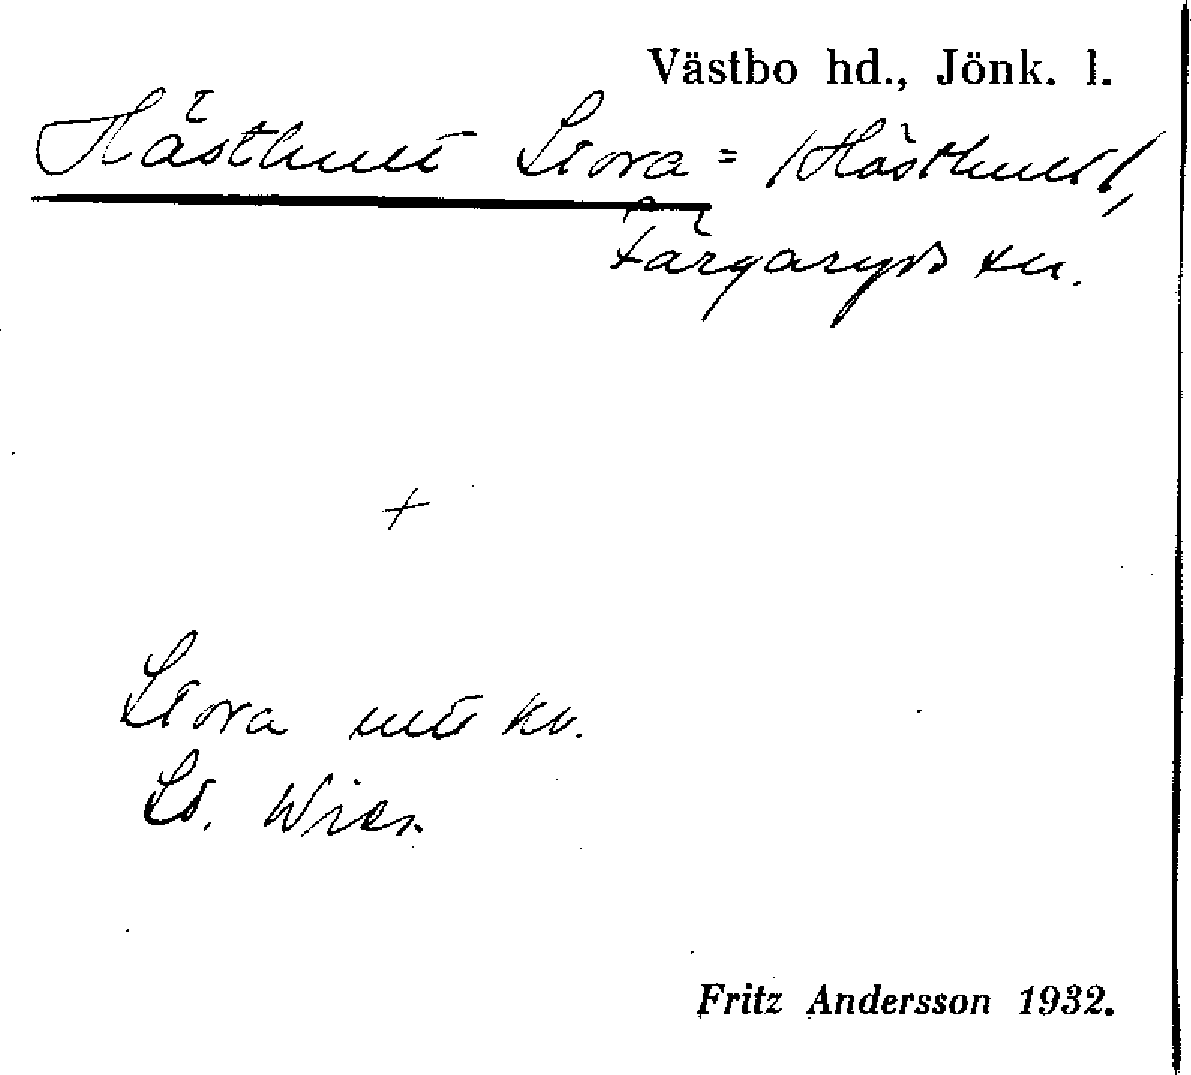 Västbo hd., Jönk. l.
Hästhult Stora = /Hästhult/,
Färgaryds sn.
+
Stora nu kv.
St.
Fritz Andersson 1932.